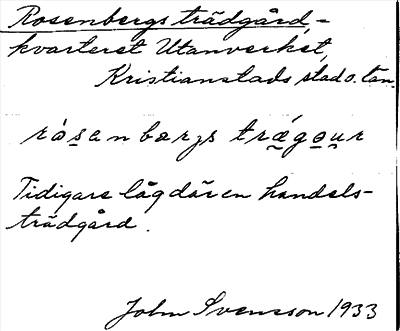 Rosenbergs trädgård, -
kvarteret Utanverket,
Kristianstads stad o. län.
ròsanbærjs trǽgəur
Tidigare låg där en handels-
trädgård.
John Svensson 1933